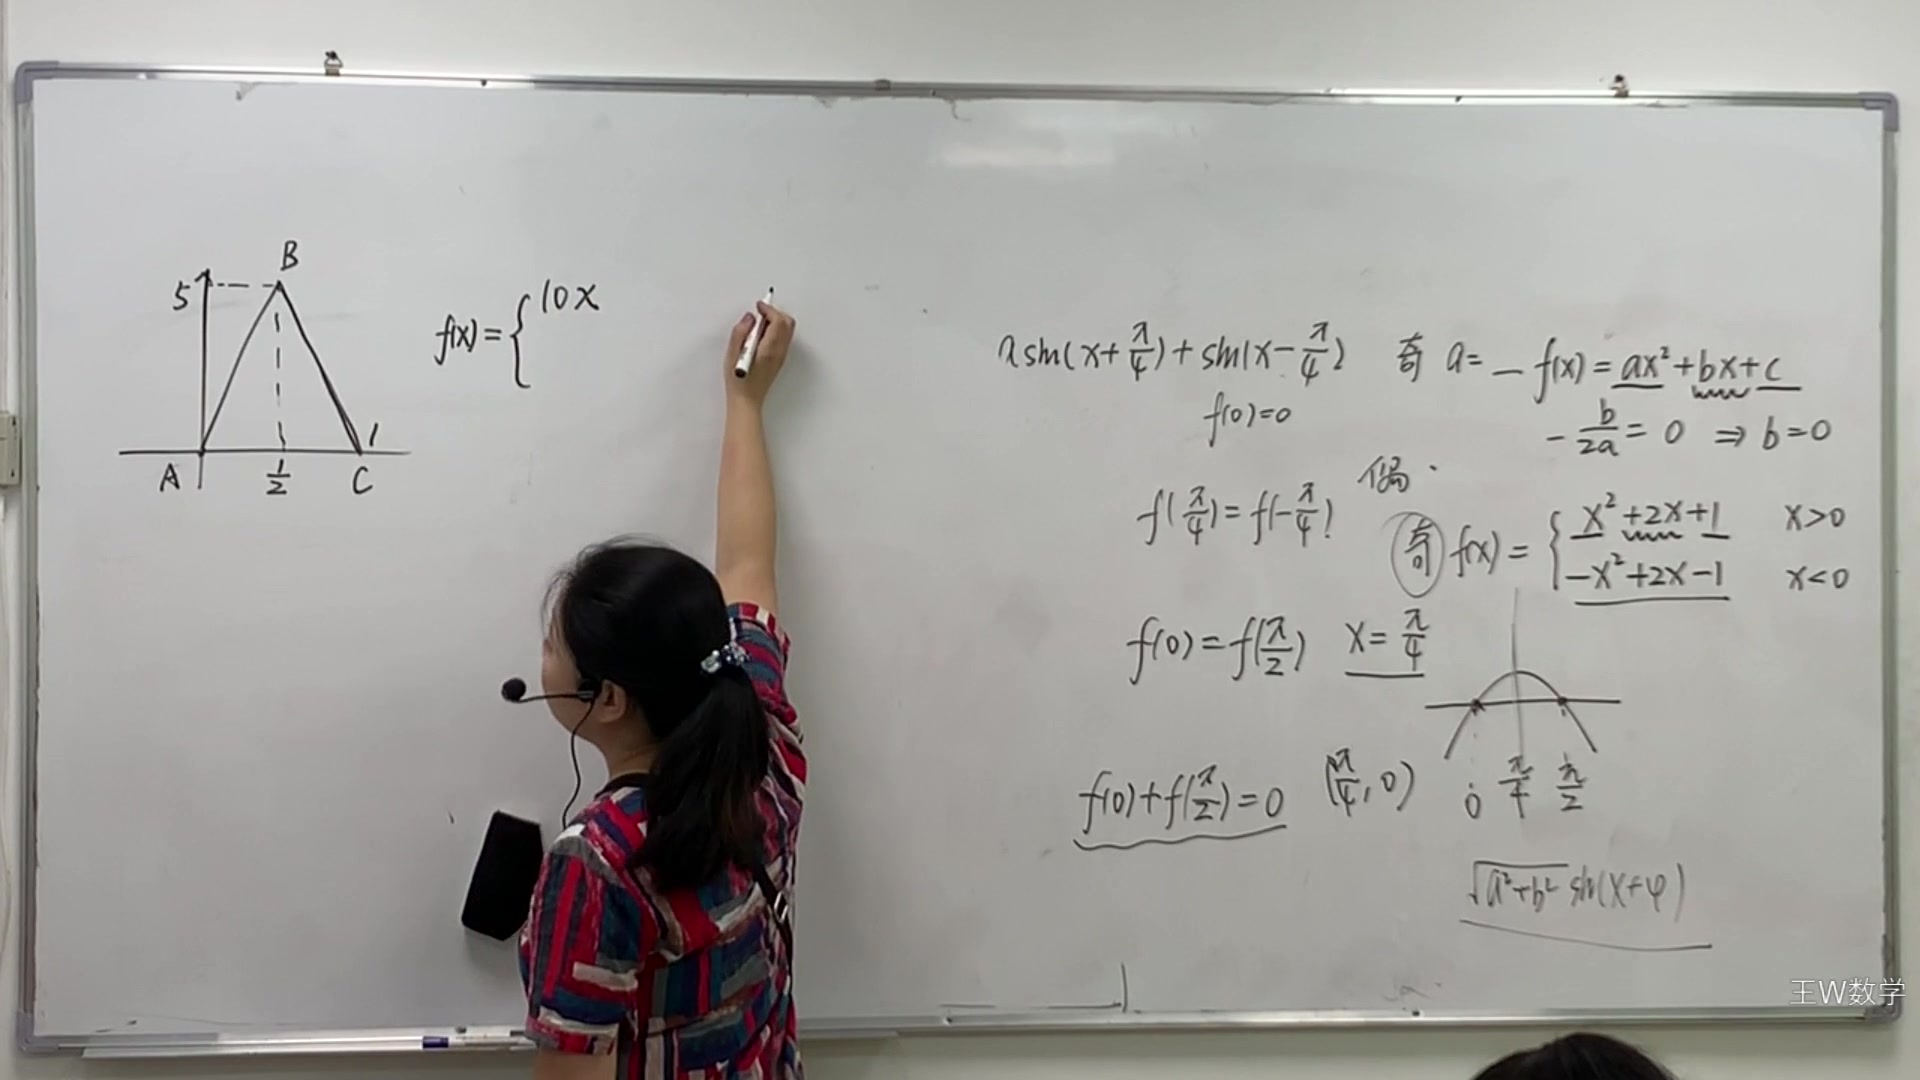 B
5
A
1/2
C
1
f(x)={10x
a sin(x+π/4)+sin(x-π/4) 奇 a=
f(0)=0
- f(x)=ax²+bx+c
-b/2a=0 ⇒ b=0
偶.
f(π/4)=f(-π/4)
奇 f(x)={x²+2x+1 x>0
-x²+2x-1 x<0
f(0)=f(π/2) x=π/4
f(0)+f(π/2)=0 (π/4,0)
0 π/4 π/2
√a²+b² sin(x+φ)
王W数学